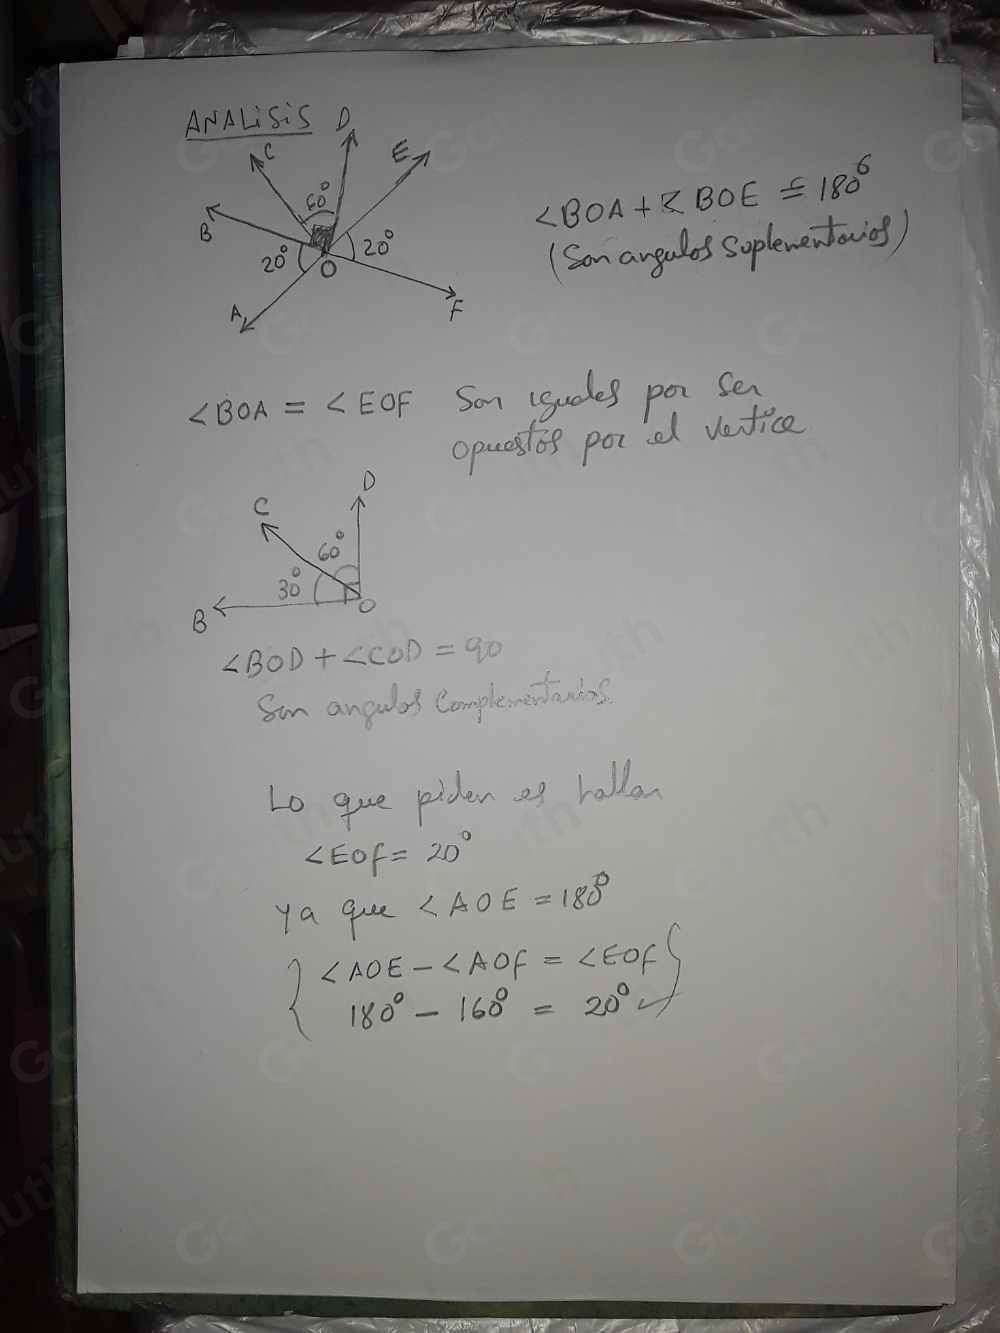 ANALISIS
D
C
E
60°
B
20°
20°
O
A
F
<BOA + <BOE = 180°
(Son angulos Suplementarios)
<BOA = <EOF Son iguales por ser
opuestos por el vertice
D
C
60°
30°
B
O
<BOD + <COD = 90
Son angulos Complementarios.
Lo que piden es hallar
<EOF = 20°
ya que <AOE = 180°
<AOE - <AOF = <EOF
180° - 160° = 20°
Gauth